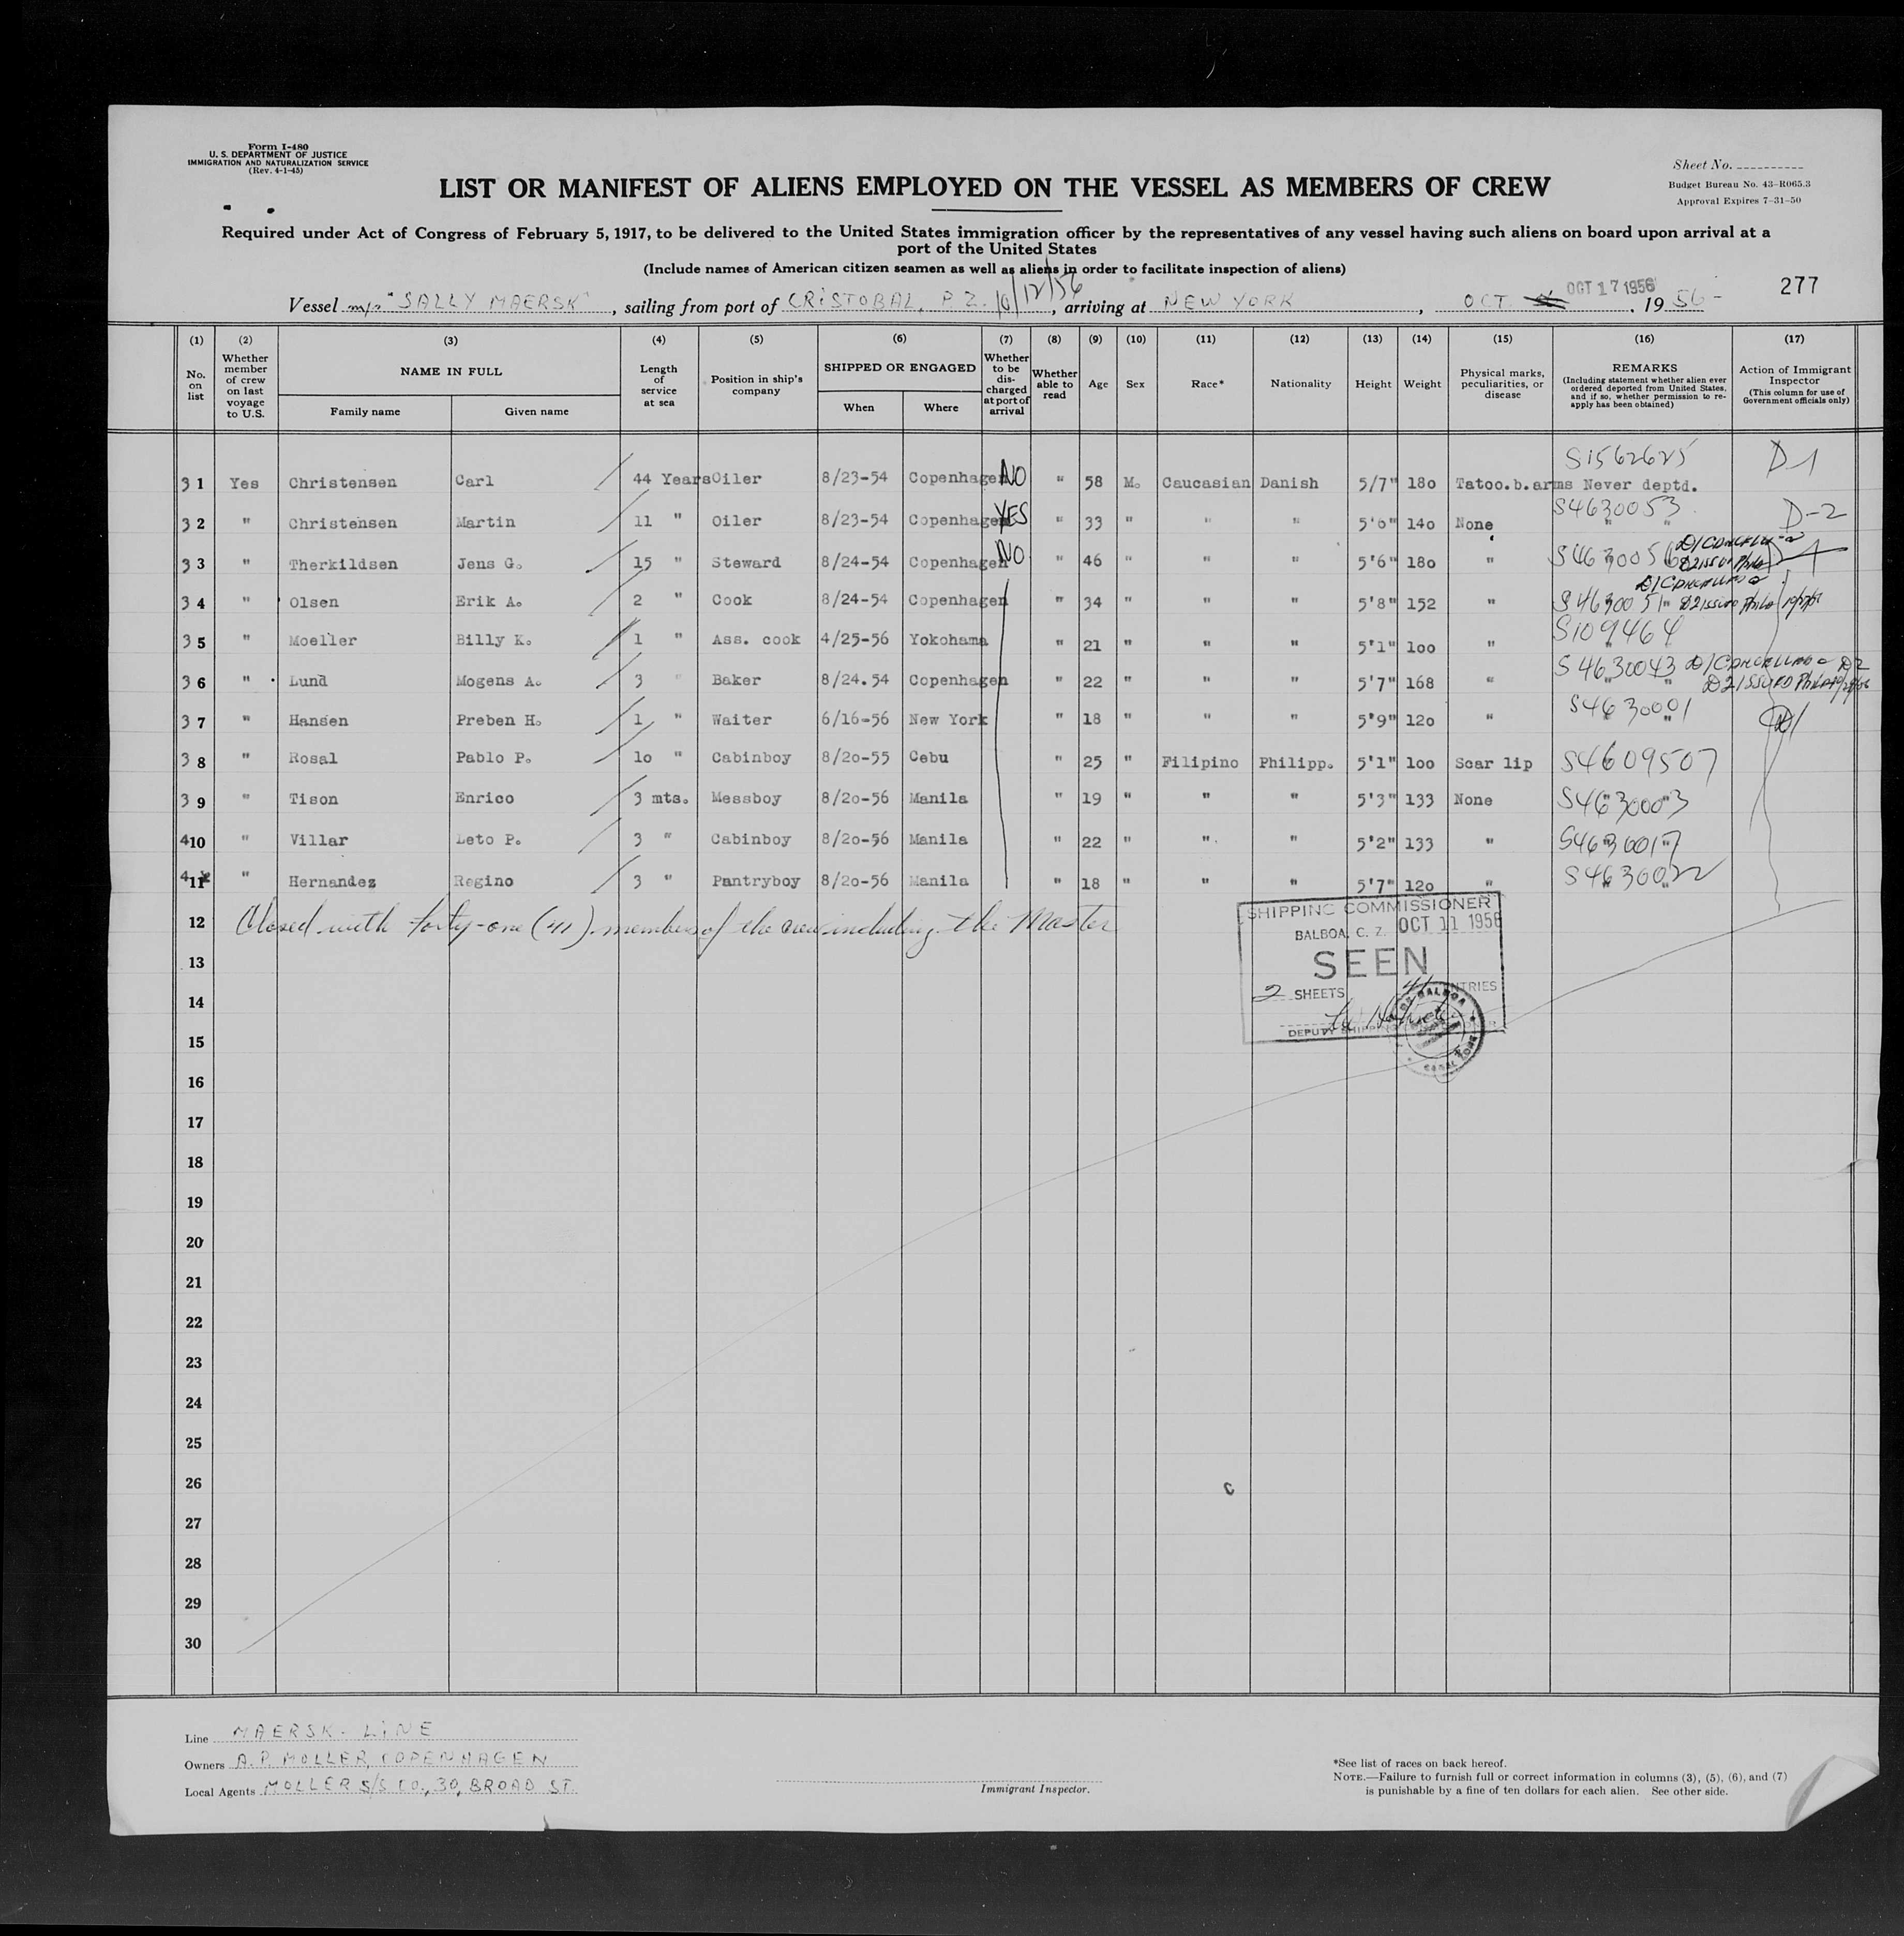 Form I-480
U. S. DEPARTMENT OF JUSTICE
IMMIGRATION AND NATURALIZATION SERVICE
(Rev. 4-1-45)
Sheet No.
Budget Bureau No. 43-R065.3
Approval Expires 7-31-50
LIST OR MANIFEST OF ALIENS EMPLOYED ON THE VESSEL AS MEMBERS OF CREW
Required under Act of Congress of February 5, 1917, to be delivered to the United States immigration officer by the representatives of any vessel having such aliens on board upon arrival at a
port of the United States
(Include names of American citizen seamen as well as aliens in order to facilitate inspection of aliens)
277
Vessel m/s "SALLY MAERSK", sailing from port of CRISTOBAL, P.Z. 10/12/56, arriving at NEW YORK, OCT. OCT 17 1956, 1956-
(1) (2) (3) (4) (5) (6) (7) (8) (9) (10) (11) (12) (13) (14) (15) (16) (17)
No. on list
Whether member of crew on last voyage to U.S.
NAME IN FULL
Family name Given name
Length of service at sea
Position in ship's company
SHIPPED OR ENGAGED
When Where
Whether to be discharged at port of arrival
Whether able to read
Age
Sex
Race*
Nationality
Height
Weight
Physical marks, peculiarities, or disease
REMARKS
(Including statement whether alien ever ordered deported from United States, and if so, whether permission to reapply has been obtained)
Action of Immigrant Inspector
(This column for use of Government officials only)
S1562625 D1
31 Yes Christensen Carl 44 Years Oiler 8/23-54 Copenhagen NO " 58 M. Caucasian Danish 5/7" 180 Tatoo.b.arms Never deptd.
32 " Christensen Martin 11 " Oiler 8/23-54 Copenhagen YES " 33 " " " 5'6" 140 None S4630053 " " D-2
33 " Therkildsen Jens G. 15 " Steward 8/24-54 Copenhagen NO " 46 " " " 5'6" 180 " S4630056
34 " Olsen Erik A. 2 " Cook 8/24-54 Copenhagen " 34 " " " 5'8" 152 " S4630051 D2 issued Phila
35 " Moeller Billy K. 1 " Ass. cook 4/25-56 Yokohama " 21 " " " 5'1" 100 " S109464
36 " Lund Mogens A. 3 " Baker 8/24.54 Copenhagen " 22 " " " 5'7" 168 " S4630043 D1 CANCELLED D2
D2 ISSUED Phila
37 " Hansen Preben H. 1 " Waiter 6/16-56 New York " 18 " " " 5'9" 120 " S4630001 D1
38 " Rosal Pablo P. 10 " Cabinboy 8/20-55 Cebu " 25 " Filipino Philipp. 5'1" 100 Scar lip S4609507
39 " Tison Enrico 3 mts. Messboy 8/20-56 Manila " 19 " " " 5'3" 133 None S4630003
410 " Villar Leto P. 3 " Cabinboy 8/20-56 Manila " 22 " " " 5'2" 133 " S4630017
411 " Hernandez Regino 3 " Pantryboy 8/20-56 Manila " 18 " " " 5'7" 120 " S4630022
12 Closed with forty-one (41) members of the crew including the Master
SHIPPING COMMISSIONER
BALBOA, C. Z. OCT 11 1956
SEEN
2 SHEETS 41 ENTRIES
DEPUTY SHIPPING
BALBOA
CANAL ZONE
13
14
15
16
17
18
19
20
21
22
23
24
25
26
27
28
29
30
Line MAERSK-LINE
Owners A.P. MOLLER, COPENHAGEN
Local Agents MOLLER S/S CO., 30, BROAD ST.
Immigrant Inspector.
*See list of races on back hereof.
NOTE.—Failure to furnish full or correct information in columns (3), (5), (6), and (7)
is punishable by a fine of ten dollars for each alien. See other side.